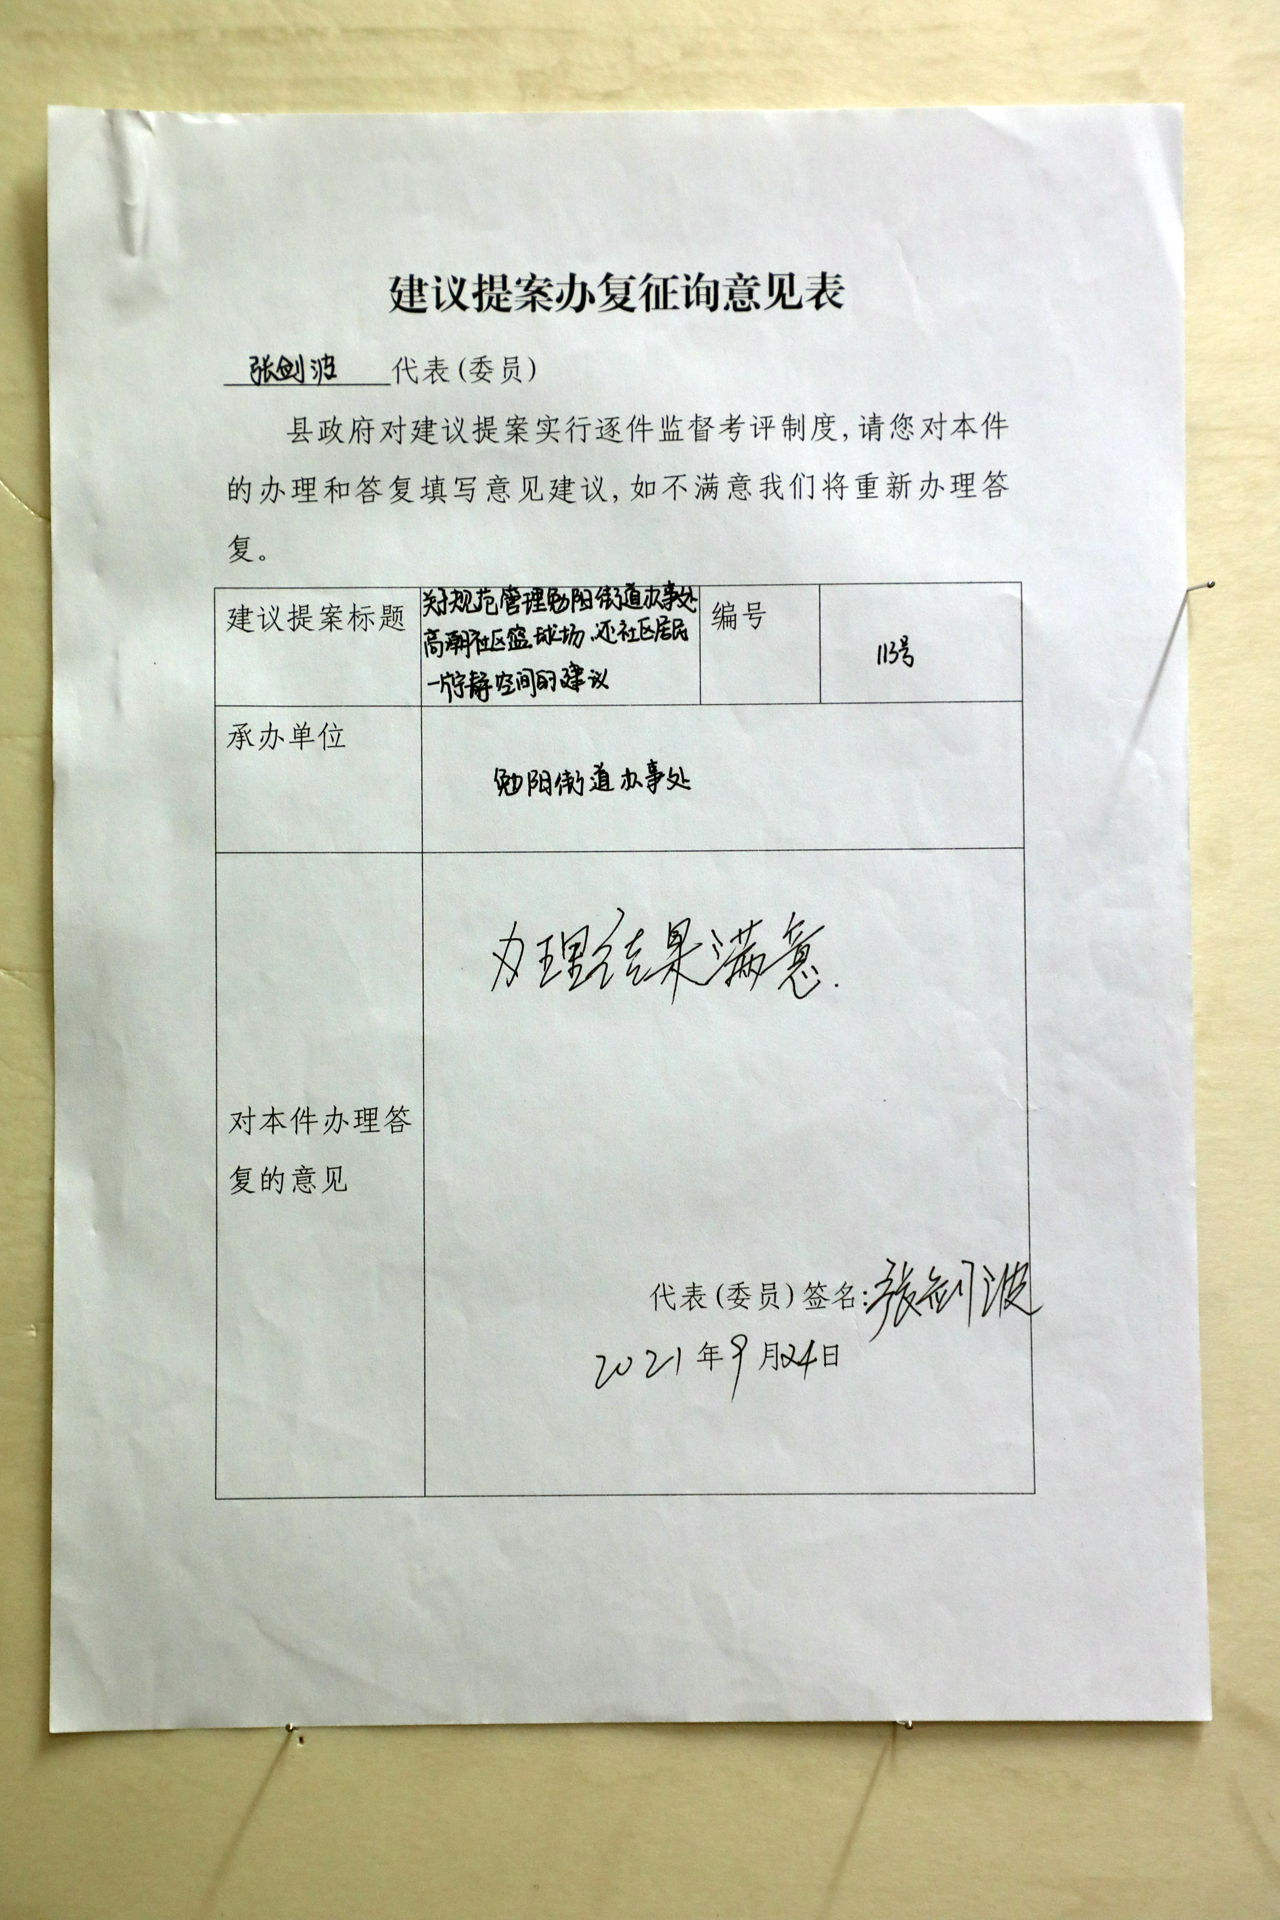 建议提案办复征询意见表
张剑波 代表(委员)
县政府对建议提案实行逐件监督考评制度,请您对本件
的办理和答复填写意见建议,如不满意我们将重新办理答
复。
建议提案标题
关于规范管理勉阳街道办事处
高潮社区篮球场、还社区居民
一片宁静空间的建议
编号
113号
承办单位
勉阳街道办事处
对本件办理答
复的意见
办理结果满意.
代表(委员)签名:张剑波
2021年9月24日